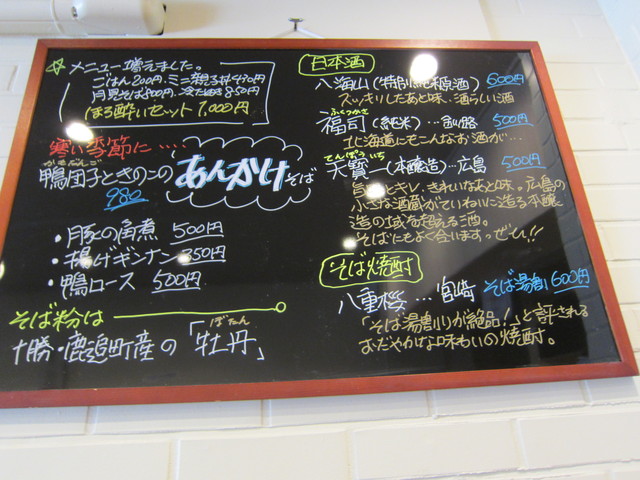 ☆メニュー増えました。
ごはん200円、ミニ親子丼470円
月見そば800円、冷だぬき850円
ほろ酔いセット 1,000円
寒い季節に‥‥
かもだんご
鴨団子ときのこの
あんかけそば
980
・豚の角煮 500円
・揚げギンナン 350円
・鴨ロース 500円
そば粉は
ぼたん
十勝・鹿追町産の「牡丹」
日本酒
八海山(特別純米原酒) 600円
スッキリしたあと味、酒らしい酒
ふくつかさ
福司(純米)…釧路 500円
北海道にもこんなお酒が…
てんぽう いち
天寶一(本醸造)…広島 500円
旨みとキレ、きれいなあと味。広島の
小さな酒蔵がていねいに造る本醸
造の域を超える酒。
そばにもよく合いますっぜひ!!
そば焼酎
八重桜…宮崎 そば湯割600円
「そば湯割りが絶品!」と評される
おだやかな味わいの焼酎。